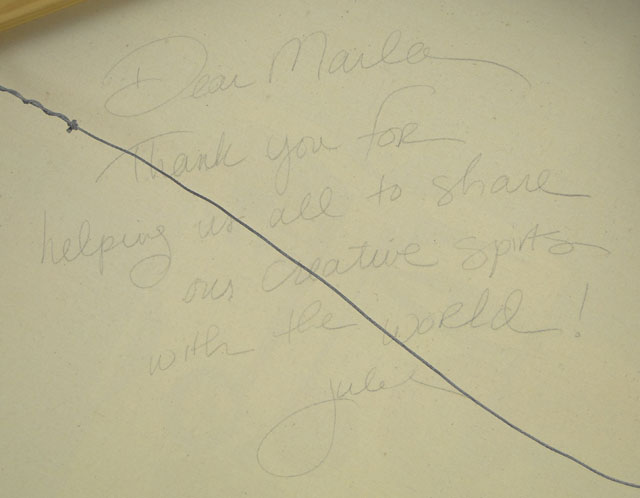 Dear Marla
Thank you for
helping us all to share
our creative spirits
with the world!
Julie